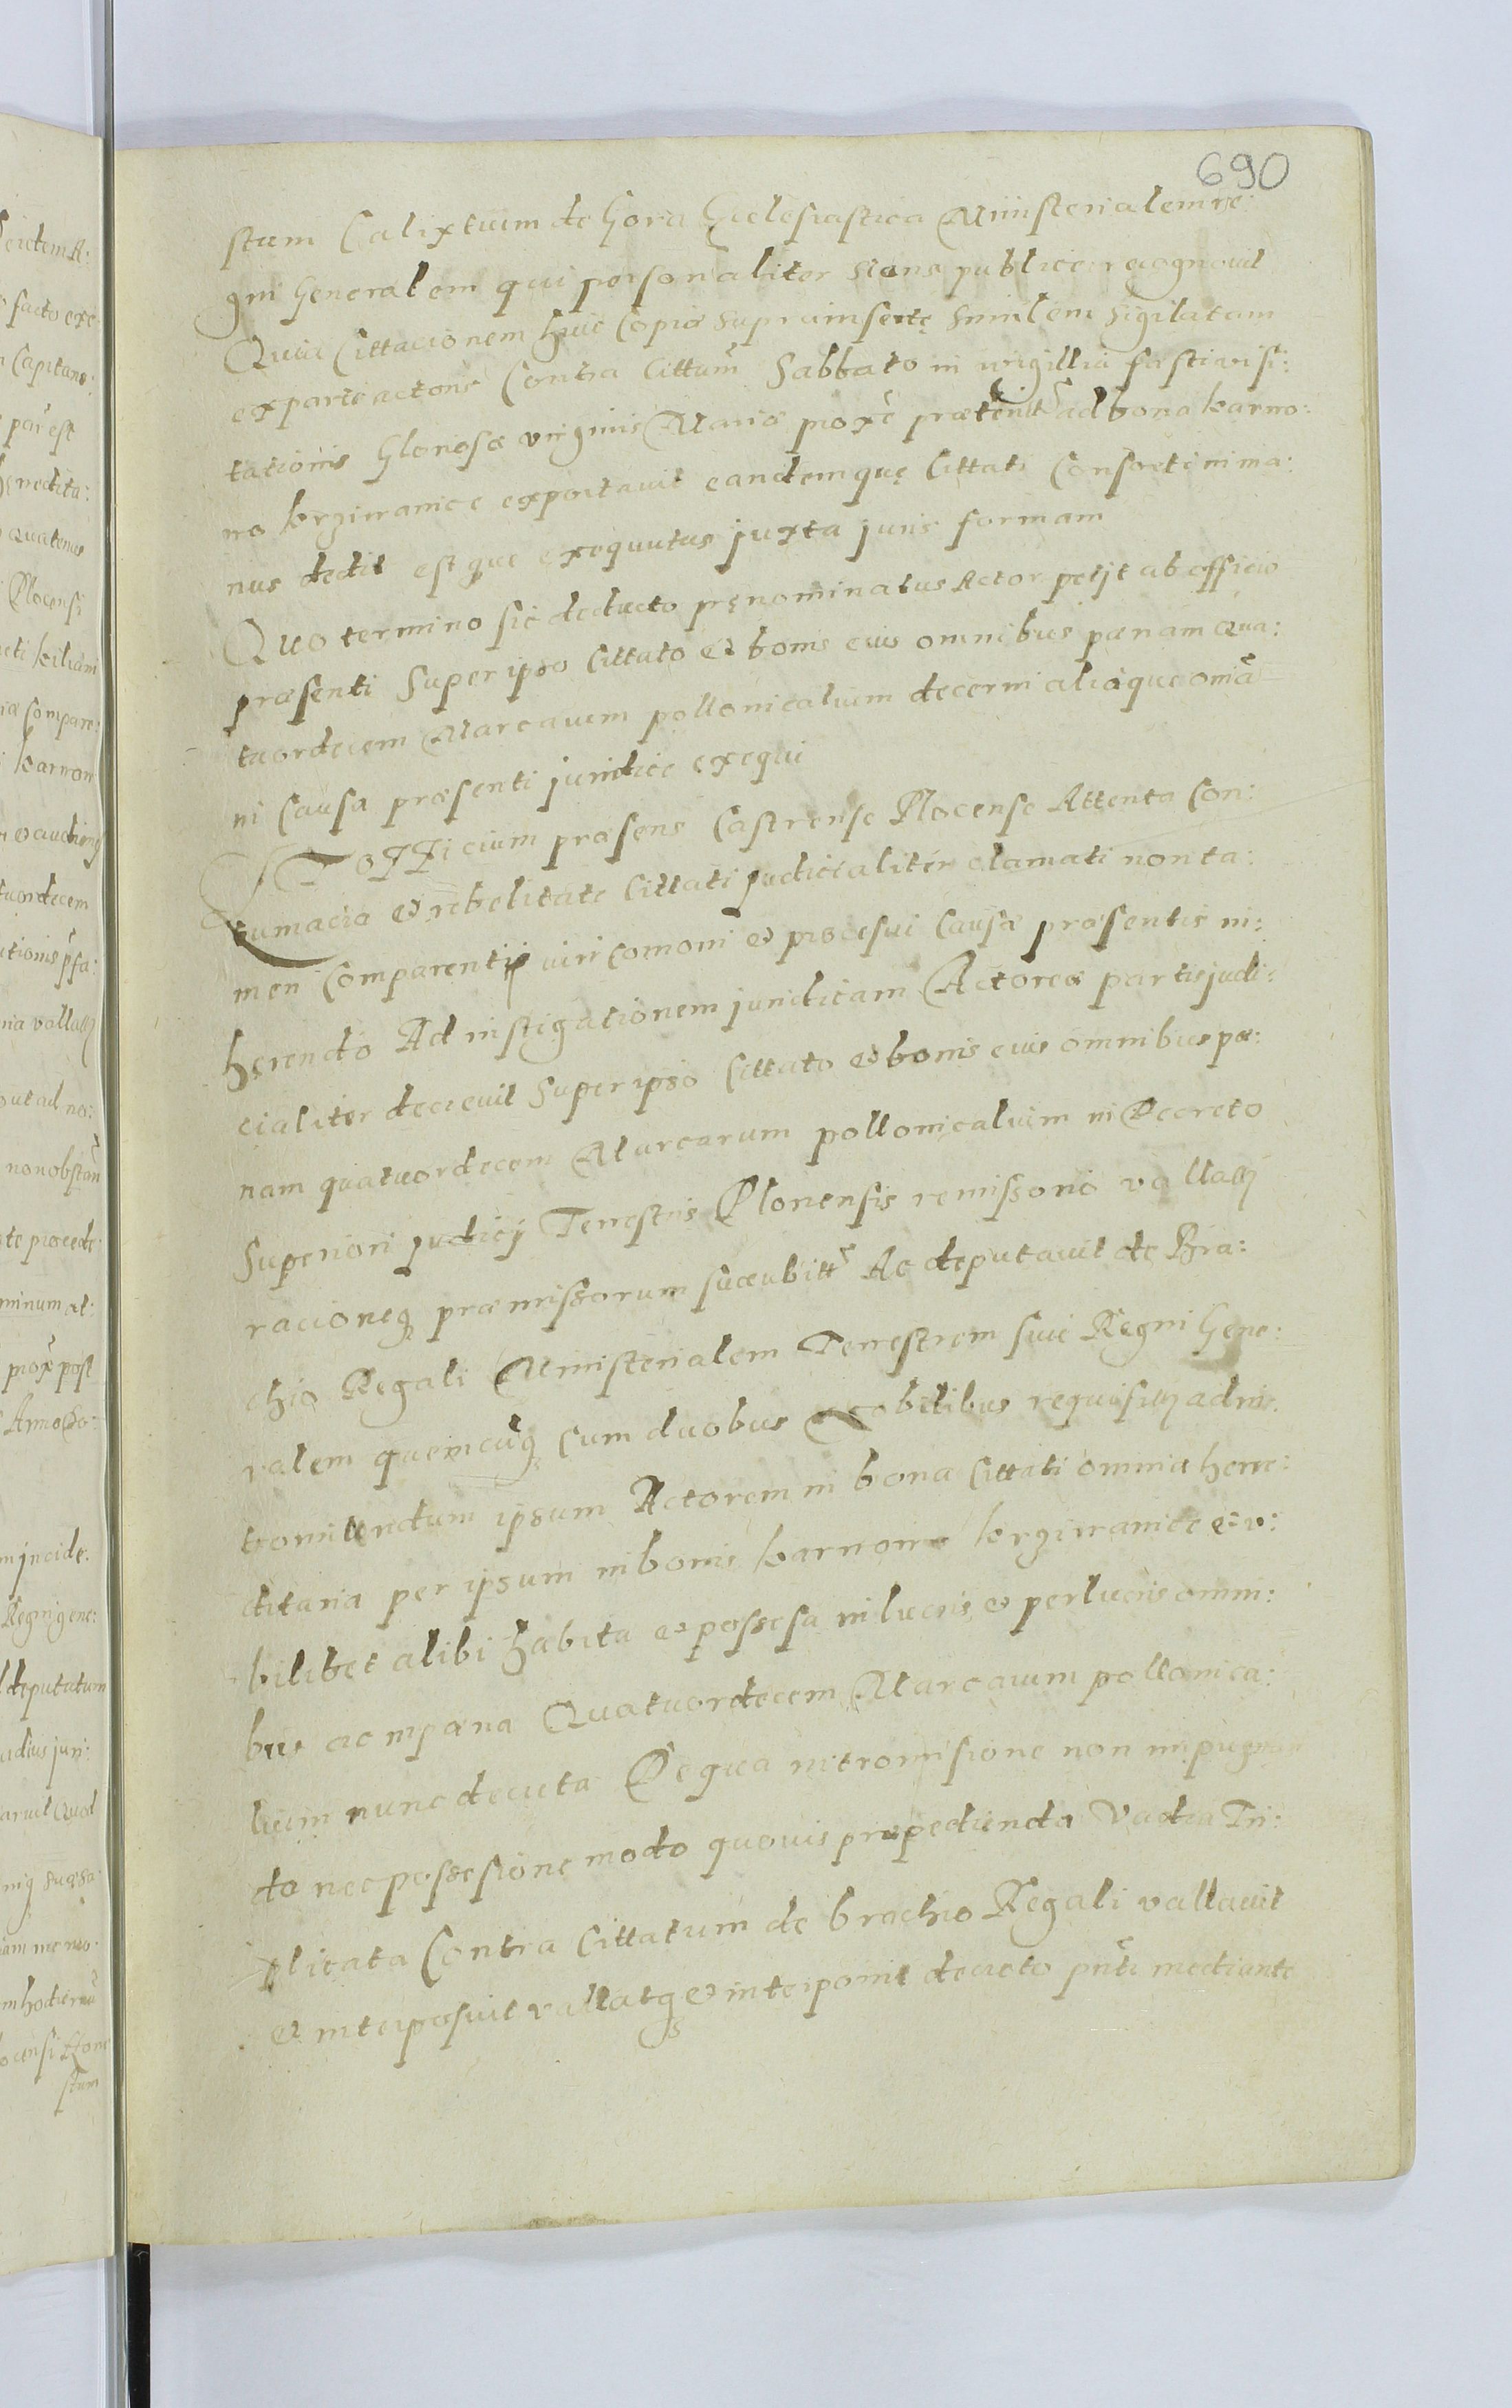 690
stum Calixtum de Gora Ecclesiastica Ministerialem re:
gni Generalem qui personaliter stans publice recognovit
Quia Cittacionem huic Copiæ suprainsertę similem sigilatam
ex parte actoris Contra Cittatum Sabbato in wigillia festi visi:
tationis Gloriosæ virginis Mariæ proxe præterit ad bona karno:
no krziwanice exportavit eandemquę Cittati Consorti in ma:
nus dedit estque exequutus juxta juris formam
Quo termino sic deducto pręnominatus Actor petijt ab officio
præsenti Super ipso Cittato et bonis eius omnibus pænam qua:
tuordecem Marcarum pollonicalium decerni aliaque omã
in Causa præsenti juridice exequi
Et Officium præsens Castrense Plocense Attenta Con:
tumacia et rebelitate Cittati Judicialiter clamati non ta:
men Comparentis viri comoni et procesui Causæ præsentis in:
herendo Ad instigationem juridicam Actoreæ partis judi:
cialiter decrevit Super ipso Cittato et bonis eius omnibus pæ:
nam quatuordecem Marcarum pollonicalium in Decreto
Superiori Judicij Terrestris Plonensis remissorio vallatą
racioneq præmissorum sucubitt Ac deputavit de Bra:
chio Regali Ministerialem Terrestrem sive Regni Gene:
ralem quemcuq Cum duobus Nobilibus requisitą ad in:
tromittendum ipsum Actorem in bona Cittati omnia herre:
ditaria per ipsum in bonis karnono krziwanice et v:
bilibet alibi habita et possesa in lucris et perlucris omni:
bus ac in pæna Quatuordecem Marcarum pollonica:
lium nunc decreta De qua intromisione non impugnan
da nec possesione modo quovis præpedienda Vadia Tri:
plicata Contra Cittatum de brachio Regali vallavit
et interposuit vallatq et interponit decreto pñti mediante